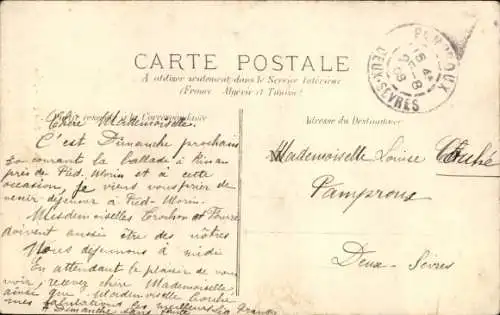 CARTE POSTALE
A utiliser seulement dans le Service Intérieur
(France, Algérie et Tunisie)
la Correspondance
Adresse du Destinataire
PAMPROUX
DEUX-SÈVRES
Chère Mademoiselle.
C'est Dimanche prochain
la ballade à
près de Pied. Morin et à cette
occasion, je viens vous prier de
venir déjeuner à Pied-Morin.
Mesdemoiselles et
doivent aussi être des nôtres
Nous déjeunons à midi
En attendant le plaisir de vous
voir, recevez chère Mademoiselle
ainsi que Mademoiselle Couhé
mes salutations les meilleures
à Dimanche sans faute
Mademoiselle Louise Couhé
Pamproux
Deux-Sèvres